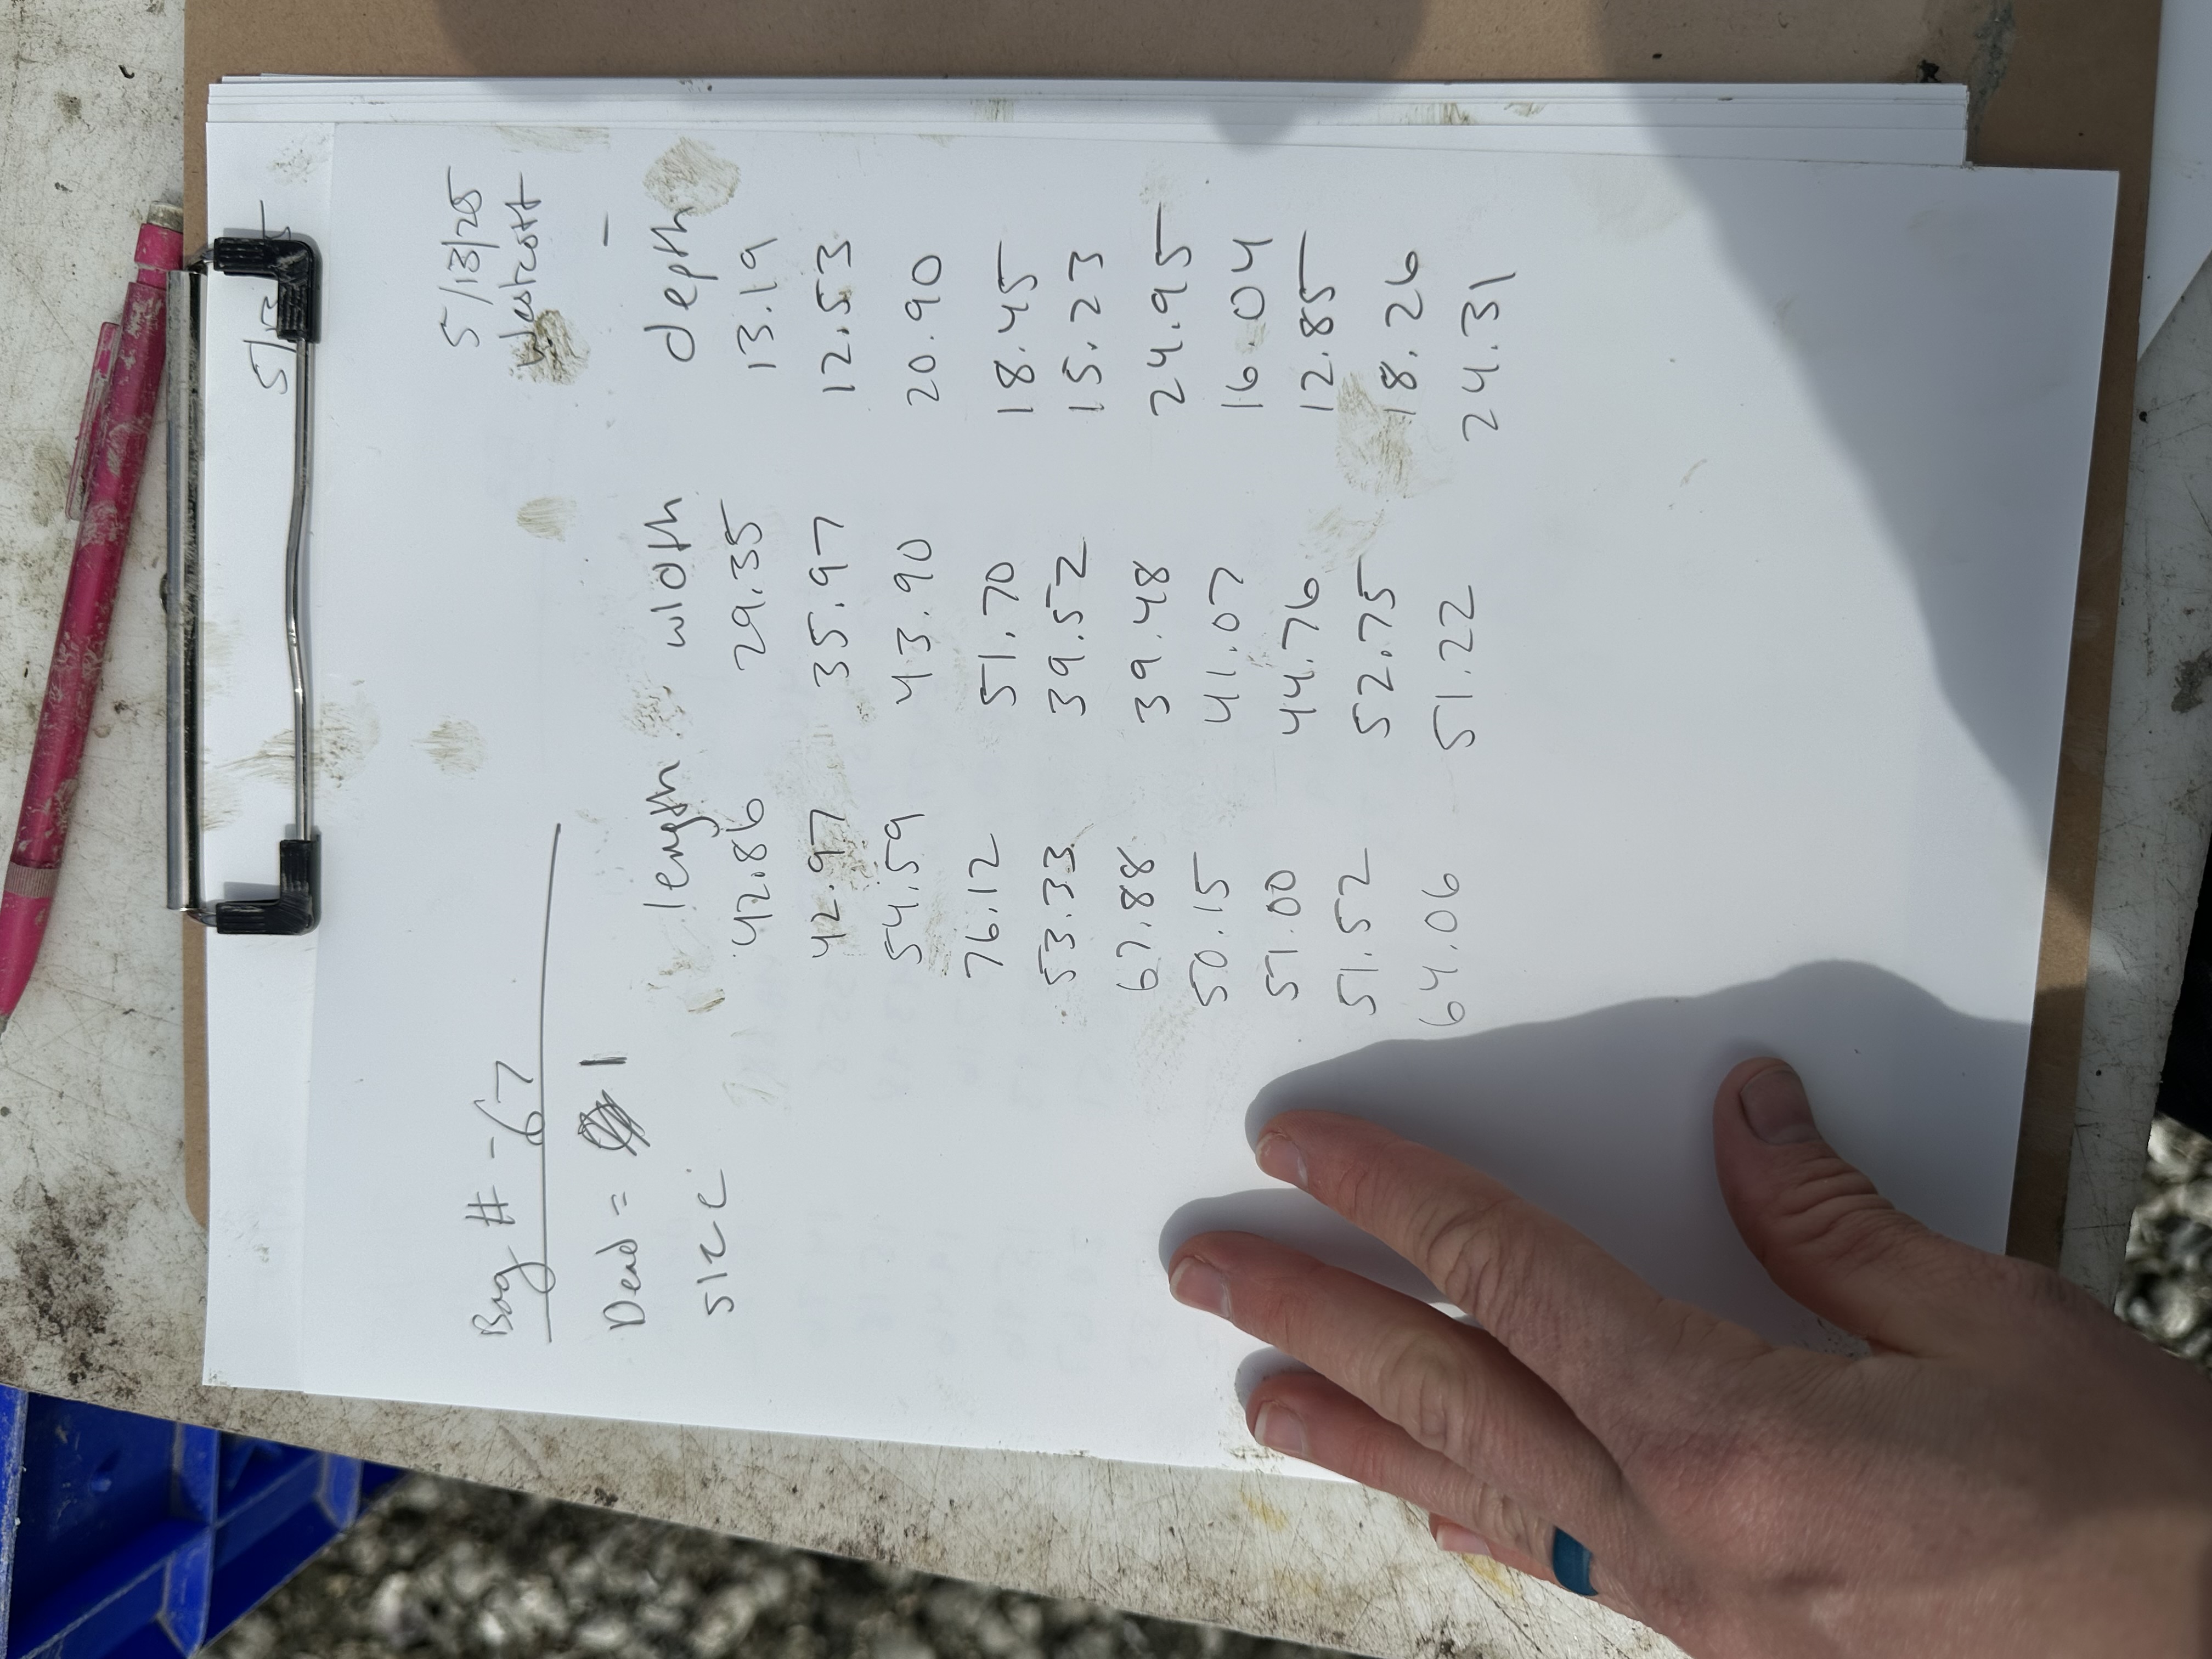 Bag # - 67
5/13/25
Westcott
Dead = 1
size
length width depth
42.86 29.35 13.19
42.97 35.97 12.53
54.59 43.90 20.90
76.12 51.70 18.45
53.33 39.52 15.23
67.88 39.48 24.95
50.15 41.07 16.04
51.00 44.76 12.85
51.52 52.75 18.26
64.06 51.22 24.31